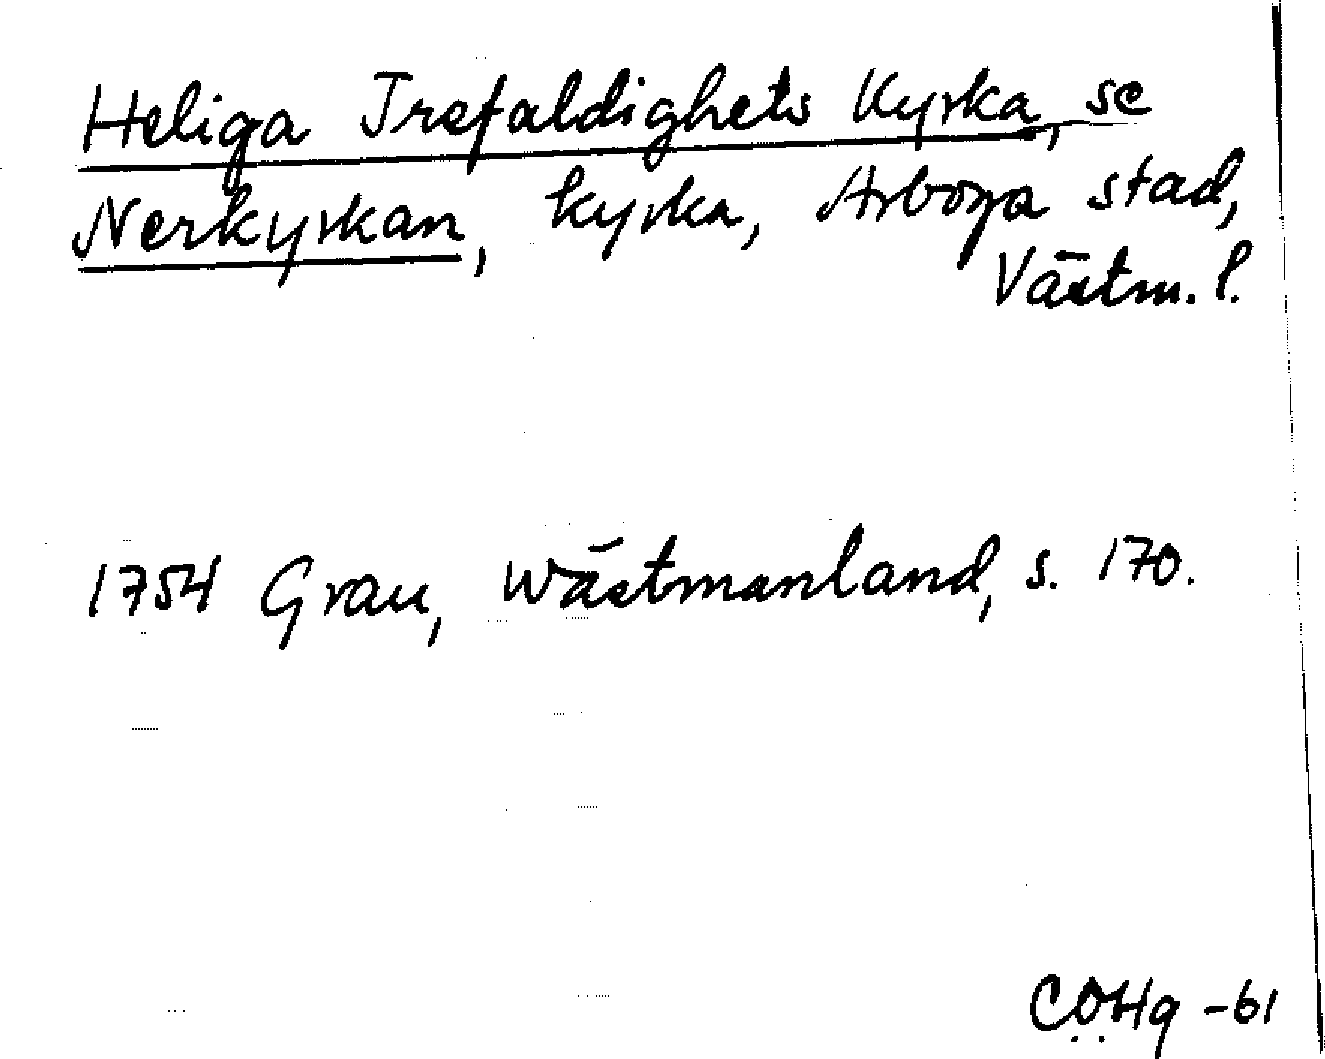 Heliga Trefaldighets Kyrka, se
Nerkyrkan, kyrka, Arboga stad,
Västm. l.
1754 Grau, Wästmanland, s. 170.
COHg -61